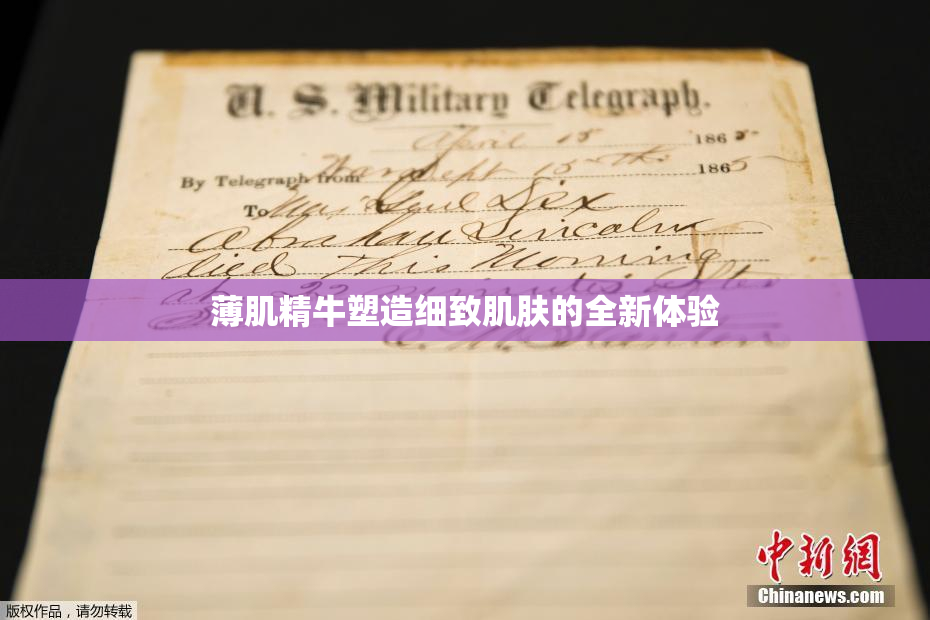 U. S. Military Telegraph.
April 15 1865
By Telegraph from War Dept 15th 1865
To Maj Genl Dix
Abraham Lincoln
died This Morning
at 22 minutes after
薄肌精牛塑造细致肌肤的全新体验
E. M. Stanton
中新网
Chinanews.com
版权作品，请勿转载